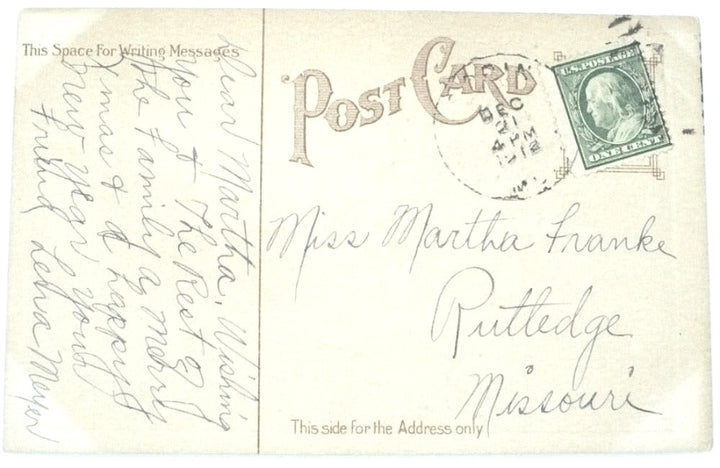 This Space For Writing Messages
POST CARD
U.S. POSTAGE
ONE CENT
Dear Martha, Wishing
you & The Rest of
The Family a Merry
Xmas & a Happy
New Year, Your
Friend Leava Meyer
Miss Martha Franke
Rutledge
Missouri
This side for the Address only